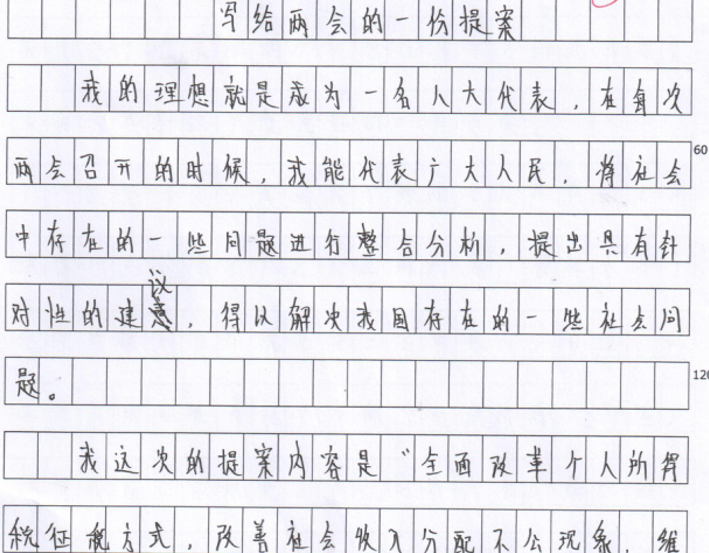 写给两会的一份提案
我的理想就是成为一名人大代表，在每次
两会召开的时候，我能代表广大人民，将社会
60
中存在的一些问题进行整合分析，提出具有针
对性的建议，得以解决我国存在的一些社会问
题。
120
我这次的提案内容是“全面改革个人所得
税征税方式，改善社会收入分配不公现象，维